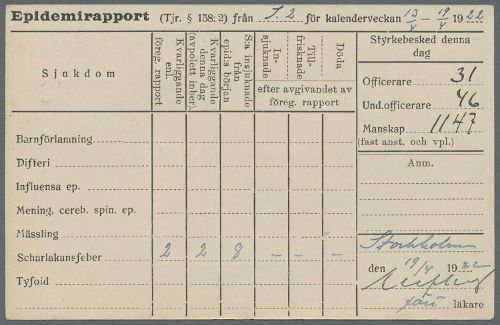 Epidemirapport (Tjr. § 158: 2) från I. 2 för kalenderveckan 13/4 – 19/4 1922
Sjukdom
Kvarliggande enl. föreg. rapport
Kvarliggande denna dag (avpolett inber.)
S:a insjuknade från epids början
In-sjuknade
Till-frisknade
Döda
efter avgivandet av föreg. rapport
Styrkebesked denna dag
Officerare 31
Und.officerare 46
Manskap 1147
(fast anst. och vpl.)
Anm.
Barnförlamning
Difteri
Influensa ep.
Mening. cereb. spin. ep.
Mässling
Scharlakansfeber 2 2 8 – – –
Tyfoid
Stockholm
den 19/4 1922
läkare